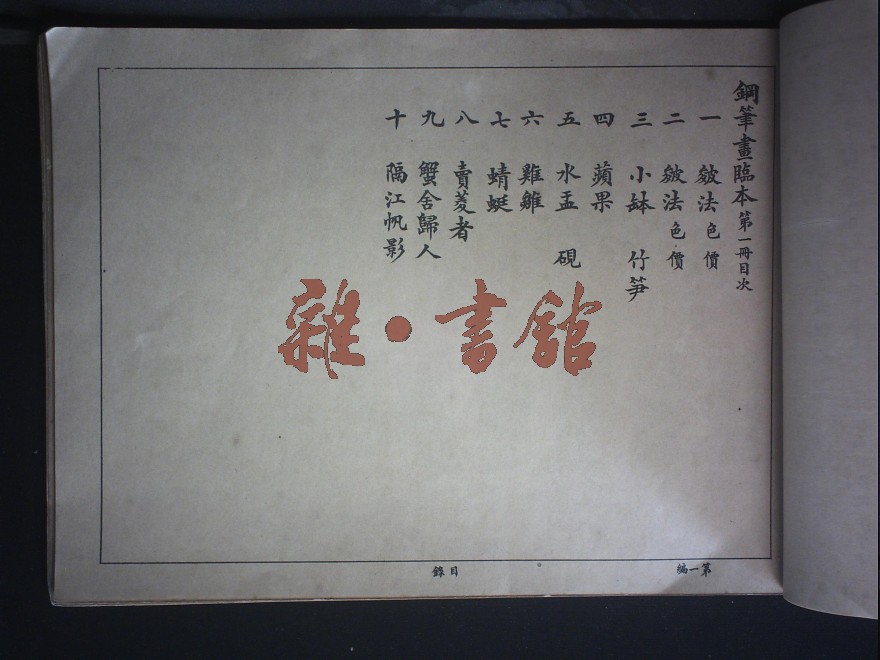 鋼筆畫臨本 第一冊目次
一 皴法 色價
二 皴法 色價
三 小缽 竹笋
四 蘋果
五 水盂 硯
六 雞雛
七 蜻蜓
八 賣菱者
九 蟹舍歸人
十 隔江帆影
雜·書館
第一編
目錄